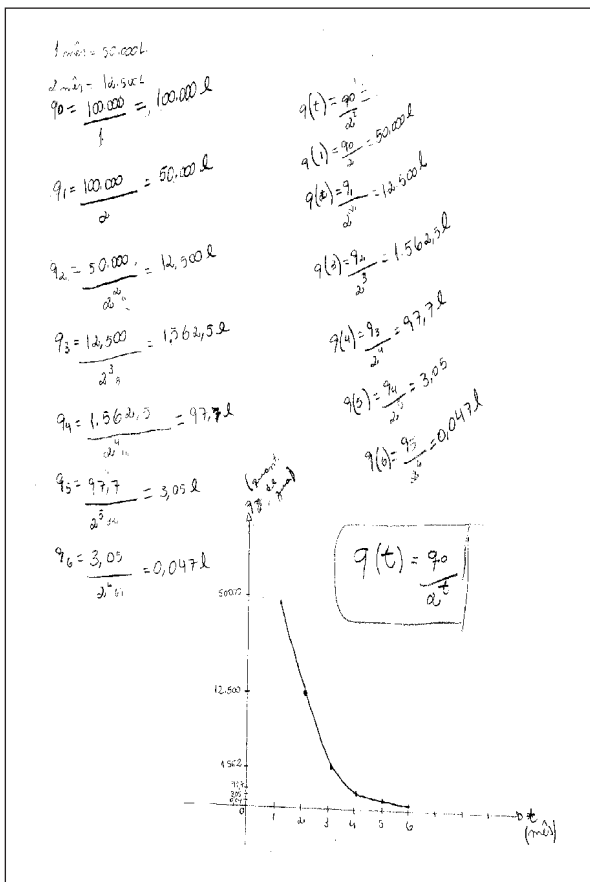 1 mês = 50.000L
2 mês = 12.500L
q0 = 100.000 / 1 = 100.000 l
q1 = 100.000 / 2 = 50.000 l
q2 = 50.000 / 2^2 = 12,500 l
q3 = 12,500 / 2^3 = 1,562,5 l
q4 = 1.562,5 / 2^4 = 97,7 l
q5 = 97,7 / 2^5 = 3,05 l
q6 = 3,05 / 2^6 = 0,047 l
q(t) = q0 / 2^t =
q(1) = q0 / 2 = 50.000 l
q(2) = q1 / 2^2 = 12.500 l
q(3) = q2 / 2^3 = 1.562,5 l
q(4) = q3 / 2^4 = 97,7 l
q(5) = q4 / 2^5 = 3,05
q(6) = q5 / 2^6 = 0,047 l
q(t) = q0 / 2^t
(quant.
de
50000
12.500
1562
97,7
0
1 2 3 4 5 6
t
(mês)